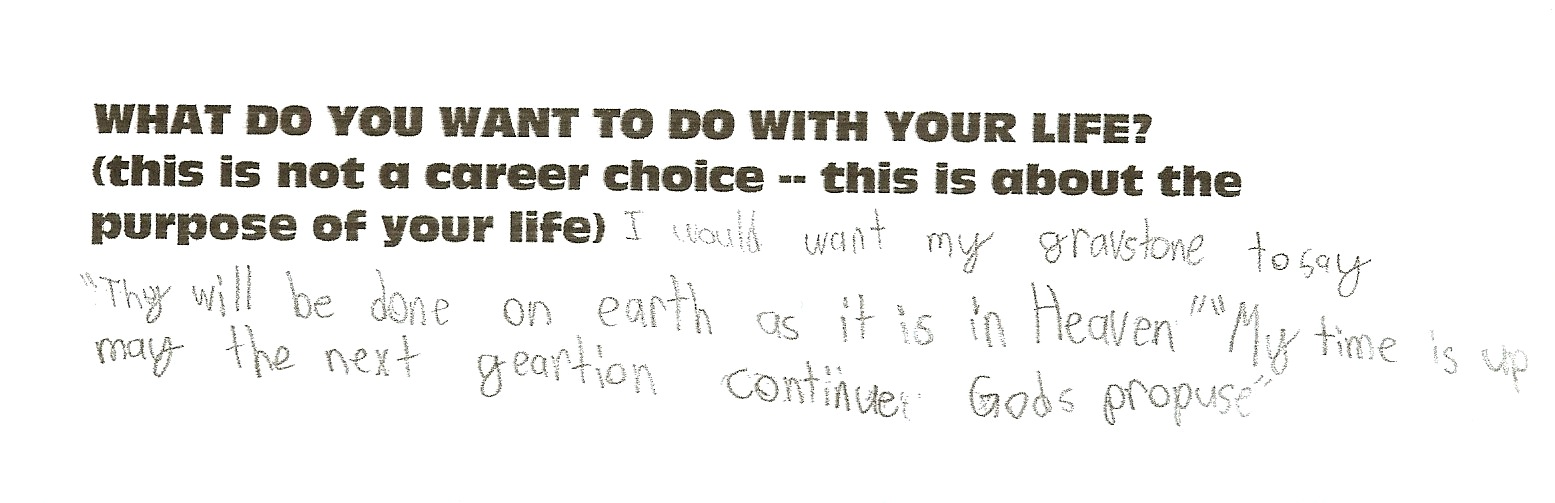 WHAT DO YOU WANT TO DO WITH YOUR LIFE?
(this is not a career choice -- this is about the
purpose of your life) I would want my gravstone to say
"Thy will be done on earth as it is in Heaven" "My time is up
may the next geartion continue Gods propuse"